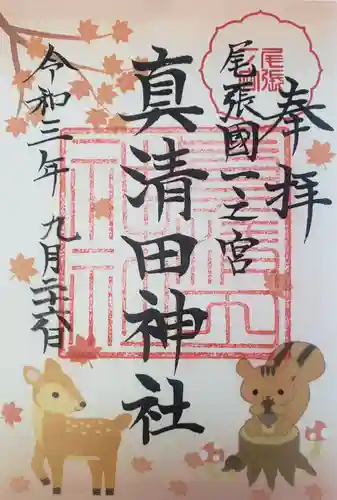 奉拝
尾張國一之宮
真清田神社
令和三年 九月二十六日